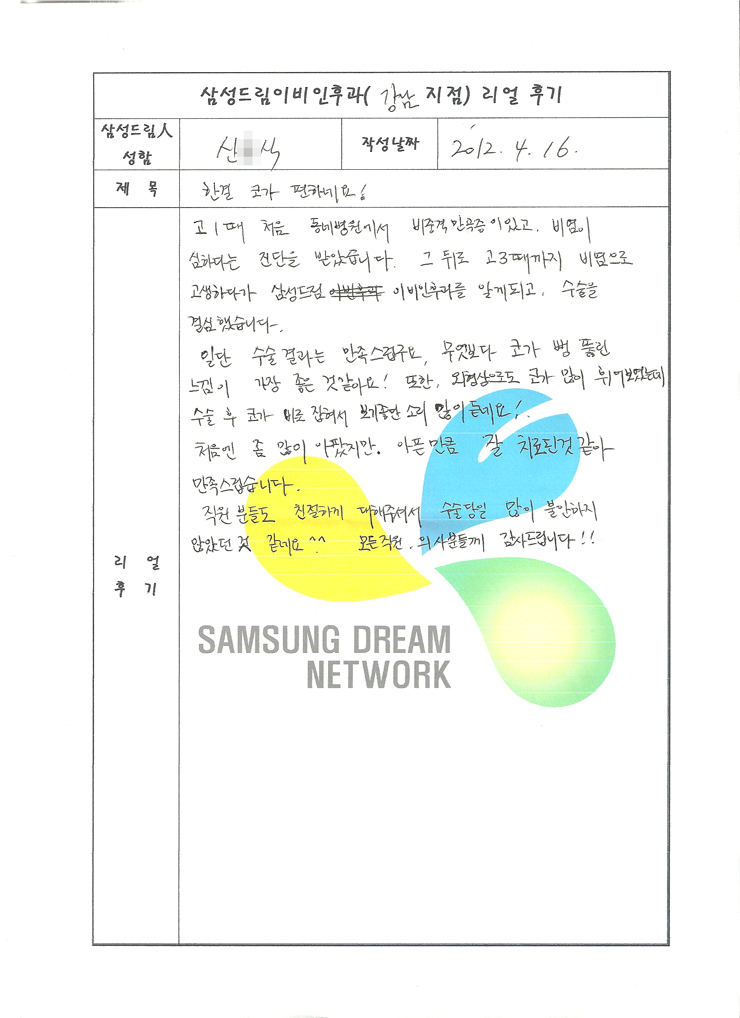 삼성드림이비인후과( 강남 지점) 리얼 후기
삼성드림人 성함
신 식
작성날짜
2012. 4. 16.
제 목
한결 코가 편하네요!
리 얼 후 기
고1때 처음 동네병원에서 비중격만곡증이있고, 비염이
심하다는 진단을 받았습니다. 그 뒤로 고3때까지 비염으로
고생하다가 삼성드림 이비인후과를 알게되고, 수술을
결심했습니다.
일단 수술결과는 만족스럽구요, 무엇보다 코가 뻥 뚫린
느낌이 가장 좋은 것같아요! 또한, 외형상으로도 코가 많이 휘어보였는데
수술 후 코가 바로 잡혀서 보기좋단 소리 많이 듣네요!
처음엔 좀 많이 아팠지만. 아픈만큼 잘 치료된것 같아
만족스럽습니다.
직원분들도 친절하게 대해주셔서 수술당일 많이 불안하지
않았던 것 같네요^^ 모든직원, 의사분들께 감사드립니다!!
SAMSUNG DREAM
NETWORK